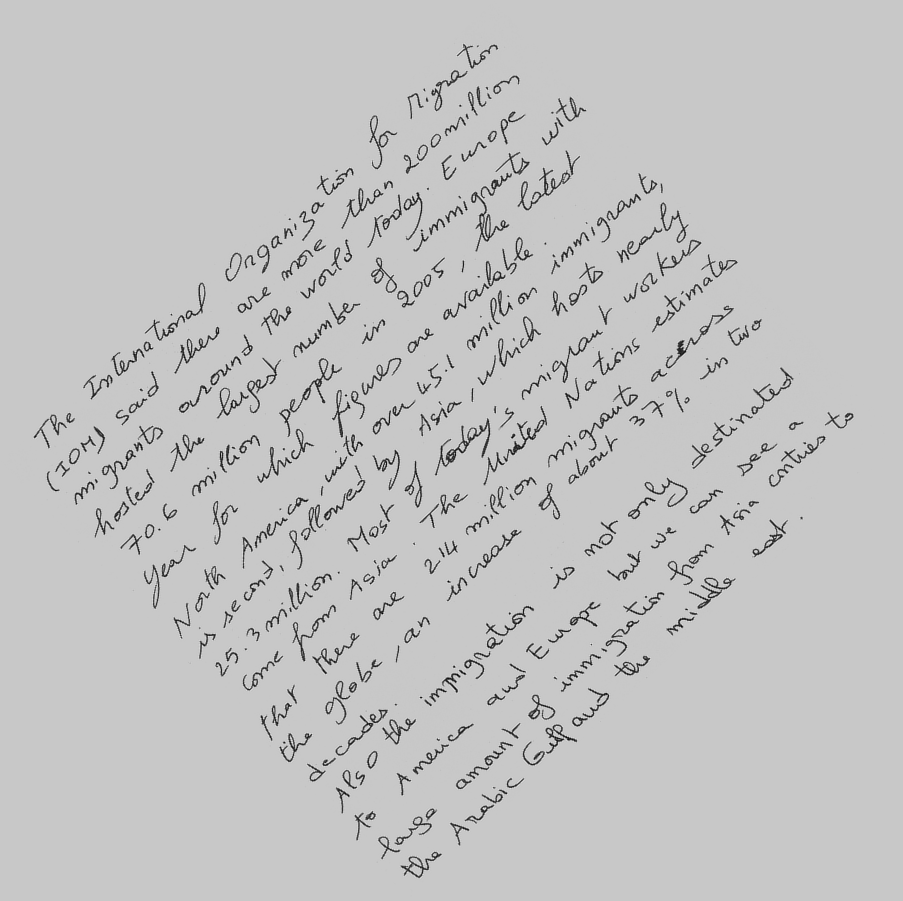 The International Organization for Migration
(IOM) said there are more than 200 million
migrants around the world today. Europe
hosted the largest number of immigrants with
70.6 million people in 2005, the latest
year for which figures are available.
North America, with over 45.1 million immigrants,
is second, followed by Asia, which hosts nearly
25.3 million. Most of today's migrant workers
come from Asia. The United Nations estimates
that there are 214 million migrants across
the globe, an increase of about 37% in two
decades.
Also the immigration is not only destinated
to America and Europe but we can see a
large amount of immigration from Asia contries to
the Arabic Gulf and the middle east.